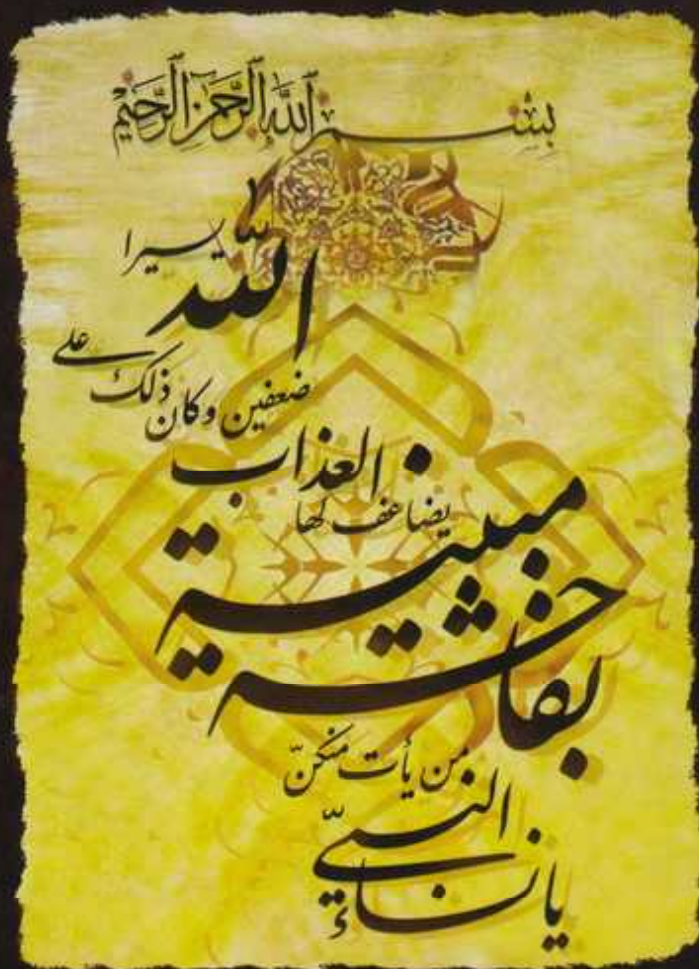 بِسْمِ ٱللَّهِ ٱلرَّحْمَٰنِ ٱلرَّحِيمِ
يا نساء
النبيّ
من يأت منكنّ
بفاحشة
مبينة
يضاعف لها
العذاب
ضعفين وكان ذلك على
اللّه
يسيرا